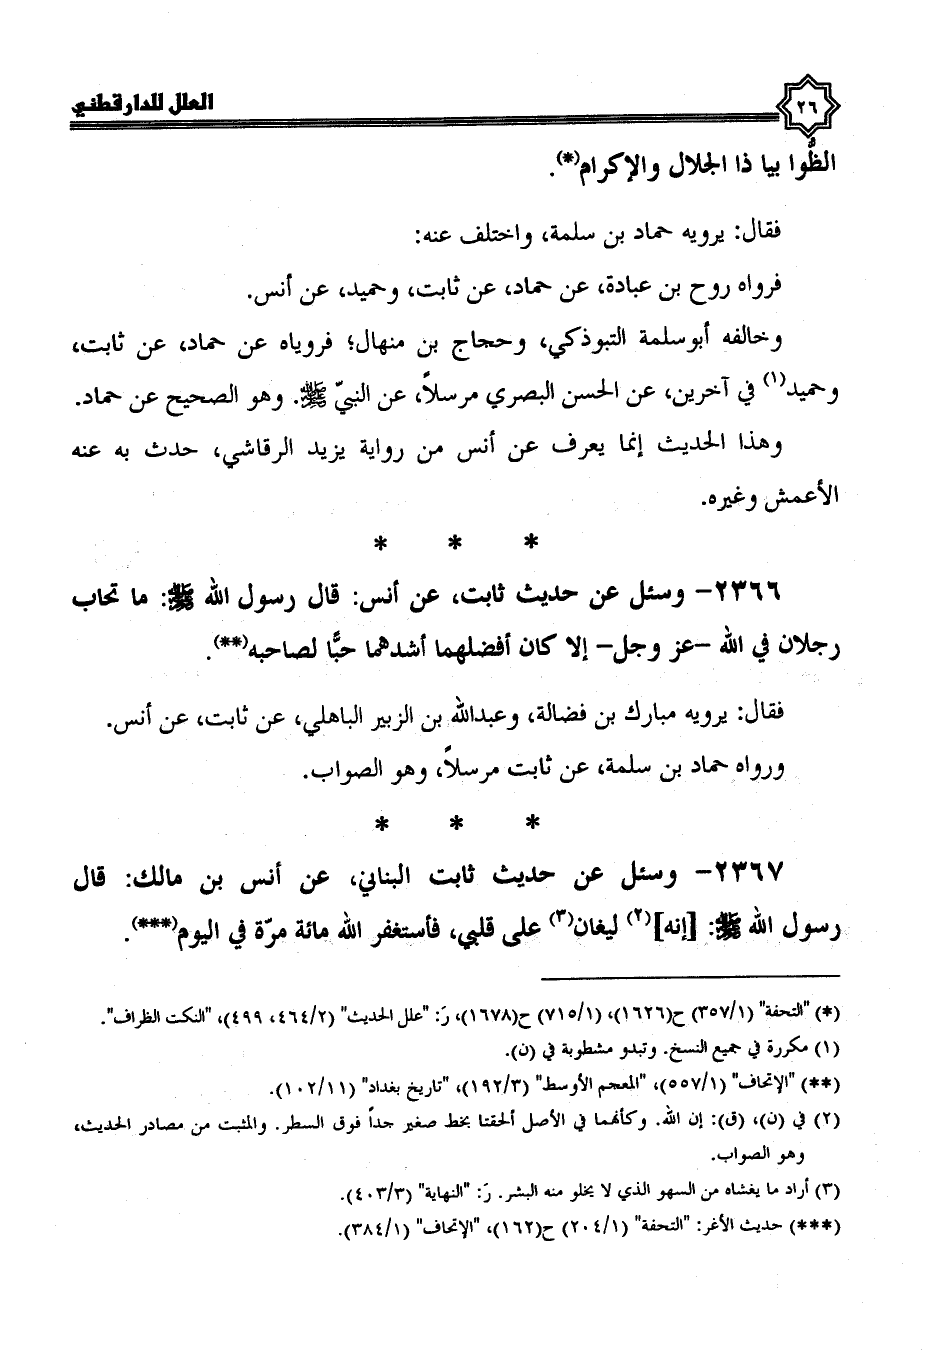 ٢٦
العلل للدارقطني
الظُّوا بيا ذا الجلال والإكرام(*).
فقال: يرويه حماد بن سلمة، واختلف عنه:
فرواه روح بن عبادة، عن حماد، عن ثابت، وحميد، عن أنس.
وخالفه أبوسلمة التبوذكي، وحجاج بن منهال؛ فروياه عن حماد، عن ثابت،
وحميد(١) في آخرين، عن الحسن البصري مرسلاً، عن النبيّ ﷺ. وهو الصحيح عن حماد.
وهذا الحديث إنما يعرف عن أنس من رواية يزيد الرقاشي، حدث به عنه
الأعمش وغيره.
* * *
٢٣٦٦- وسئل عن حديث ثابت، عن أنس: قال رسول الله ﷺ: ما تحاب
رجلان في الله -عز وجل- إلا كان أفضلهما أشدهما حبًّا لصاحبه(**).
فقال: يرويه مبارك بن فضالة، وعبدالله بن الزبير الباهلي، عن ثابت، عن أنس.
ورواه حماد بن سلمة، عن ثابت مرسلاً، وهو الصواب.
* * *
٢٣٦٧- وسئل عن حديث ثابت البناني، عن أنس بن مالك: قال
رسول الله ﷺ: [إنه](٢) ليغان(٣) على قلبي، فأستغفر الله مائة مرّة في اليوم(***).
(*) "التحفة" (٣٥٧/١) ح(١٦٢٦)، (٧١٥/١) ح(١٦٧٨)، رَ: "علل الحديث" (٤٦٤/٢، ٤٩٩)، "النكت الظراف".
(١) مكررة في جميع النسخ. وتبدو مشطوبة في (ن).
(**) "الإتحاف" (٥٥٧/١)، "المعجم الأوسط" (١٩٢/٣)، "تاريخ بغداد" (١٠٢/١١).
(٢) في (ن)، (ق): إن الله. وكأنهما في الأصل ألحقتا بخط صغير جداً فوق السطر. والمثبت من مصادر الحديث،
وهو الصواب.
(٣) أراد ما يغشاه من السهو الذي لا يخلو منه البشر. رَ: "النهاية" (٤٠٣/٣).
(***) حديث الأغر: "التحفة" (٢٠٤/١) ح(١٦٢)، "الإتحاف" (٣٨٤/١).